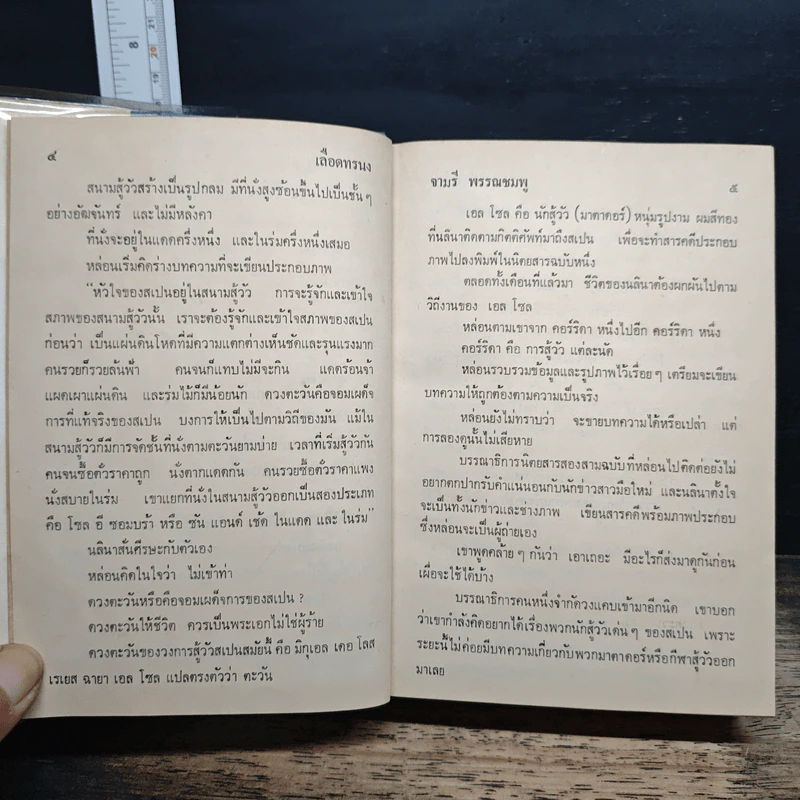 8
19
20
21
๔
เลือดทรนง
สนามสู้วัวสร้างเป็นรูปกลม มีที่นั่งสูงซ้อนขึ้นไปเป็นชั้นๆ
อย่างอัฒจันทร์ และไม่มีหลังคา
ที่นั่งจะอยู่ในแดดครึ่งหนึ่ง และในร่มครึ่งหนึ่งเสมอ
หล่อนเริ่มคิดร่างบทความที่จะเขียนประกอบภาพ
"หัวใจของสเปนอยู่ในสนามสู้วัว การจะรู้จักและเข้าใจ
สภาพของสนามสู้วัวนั้น เราจะต้องรู้จักและเข้าใจสภาพของสเปน
ก่อนว่า เป็นแผ่นดินโหดที่มีความแตกต่างเห็นชัดและรุนแรงมาก
คนรวยก็รวยล้นฟ้า คนจนก็แทบไม่มีจะกิน แดดร้อนจ้า
แผดเผาแผ่นดิน และร่มไม้ก็มีน้อยนัก ดวงตะวันคือจอมเผด็จ
การที่แท้จริงของสเปน บงการให้เป็นไปตามวิถีของมัน แม้ใน
สนามสู้วัวก็มีการจัดชั้นที่นั่งตามตะวันยามบ่าย เวลาที่เริ่มสู้วัวกัน
คนจนซื้อตั๋วราคาถูก นั่งตากแดดกัน คนรวยซื้อตั๋วราคาแพง
นั่งสบายในร่ม เขาแยกที่นั่งในสนามสู้วัวออกเป็นสองประเภท
คือ โซล อี ซอมบร้า หรือ ซัน แอนด์ เช้ด ในแดด และ ในร่ม"
นลินาสั่นศีรษะกับตัวเอง
หล่อนคิดในใจว่า ไม่เข้าท่า
ดวงตะวันหรือคือจอมเผด็จการของสเปน ?
ดวงตะวันให้ชีวิต ควรเป็นพระเอกไม่ใช่ผู้ร้าย
ดวงตะวันของวงการสู้วัวสเปนสมัยนี้ คือ มิกุเอล เดอ โลส
เรเยส ฉายา เอล โซล แปลตรงตัวว่า ตะวัน
จามรี พรรณชมพู
๕
เอล โซล คือ นักสู้วัว (มาตาดอร์) หนุ่มรูปงาม ผมสีทอง
ที่นลินาติดตามกิตติศัพท์มาถึงสเปน เพื่อจะทำสารคดีประกอบ
ภาพไปลงพิมพ์ในนิตยสารฉบับหนึ่ง
ตลอดทั้งเดือนที่แล้วมา ชีวิตของนลินาต้องผกผันไปตาม
วิถีงานของ เอล โซล
หล่อนตามเขาจาก คอร์ริดา หนึ่งไปอีก คอร์ริดา หนึ่ง
คอร์ริดา คือ การสู้วัว แต่ละนัด
หล่อนรวบรวมข้อมูลและรูปภาพไว้เรื่อยๆ เตรียมจะเขียน
บทความให้ถูกต้องตามความเป็นจริง
หล่อนยังไม่ทราบว่า จะขายบทความได้หรือเปล่า แต่
การลองดูนั้นไม่เสียหาย
บรรณาธิการนิตยสารสองสามฉบับที่หล่อนไปติดต่อยังไม่
อยากตกปากรับคำแน่นอนกับนักข่าวสาวมือใหม่ และนลินาตั้งใจ
จะเป็นทั้งนักข่าวและช่างภาพ เขียนสารคดีพร้อมภาพประกอบ
ซึ่งหล่อนจะเป็นผู้ถ่ายเอง
เขาพูดคล้ายๆ กันว่า เอาเถอะ มีอะไรก็ส่งมาดูกันก่อน
เผื่อจะใช้ได้บ้าง
บรรณาธิการคนหนึ่งจำกัดวงแคบเข้ามาอีกนิด เขาบอก
ว่าเขากำลังคิดอยากได้เรื่องพวกนักสู้วัวเด่นๆ ของสเปน เพราะ
ระยะนี้ไม่ค่อยมีบทความเกี่ยวกับพวกมาตาดอร์หรือกีฬาสู้วัวออก
มาเลย